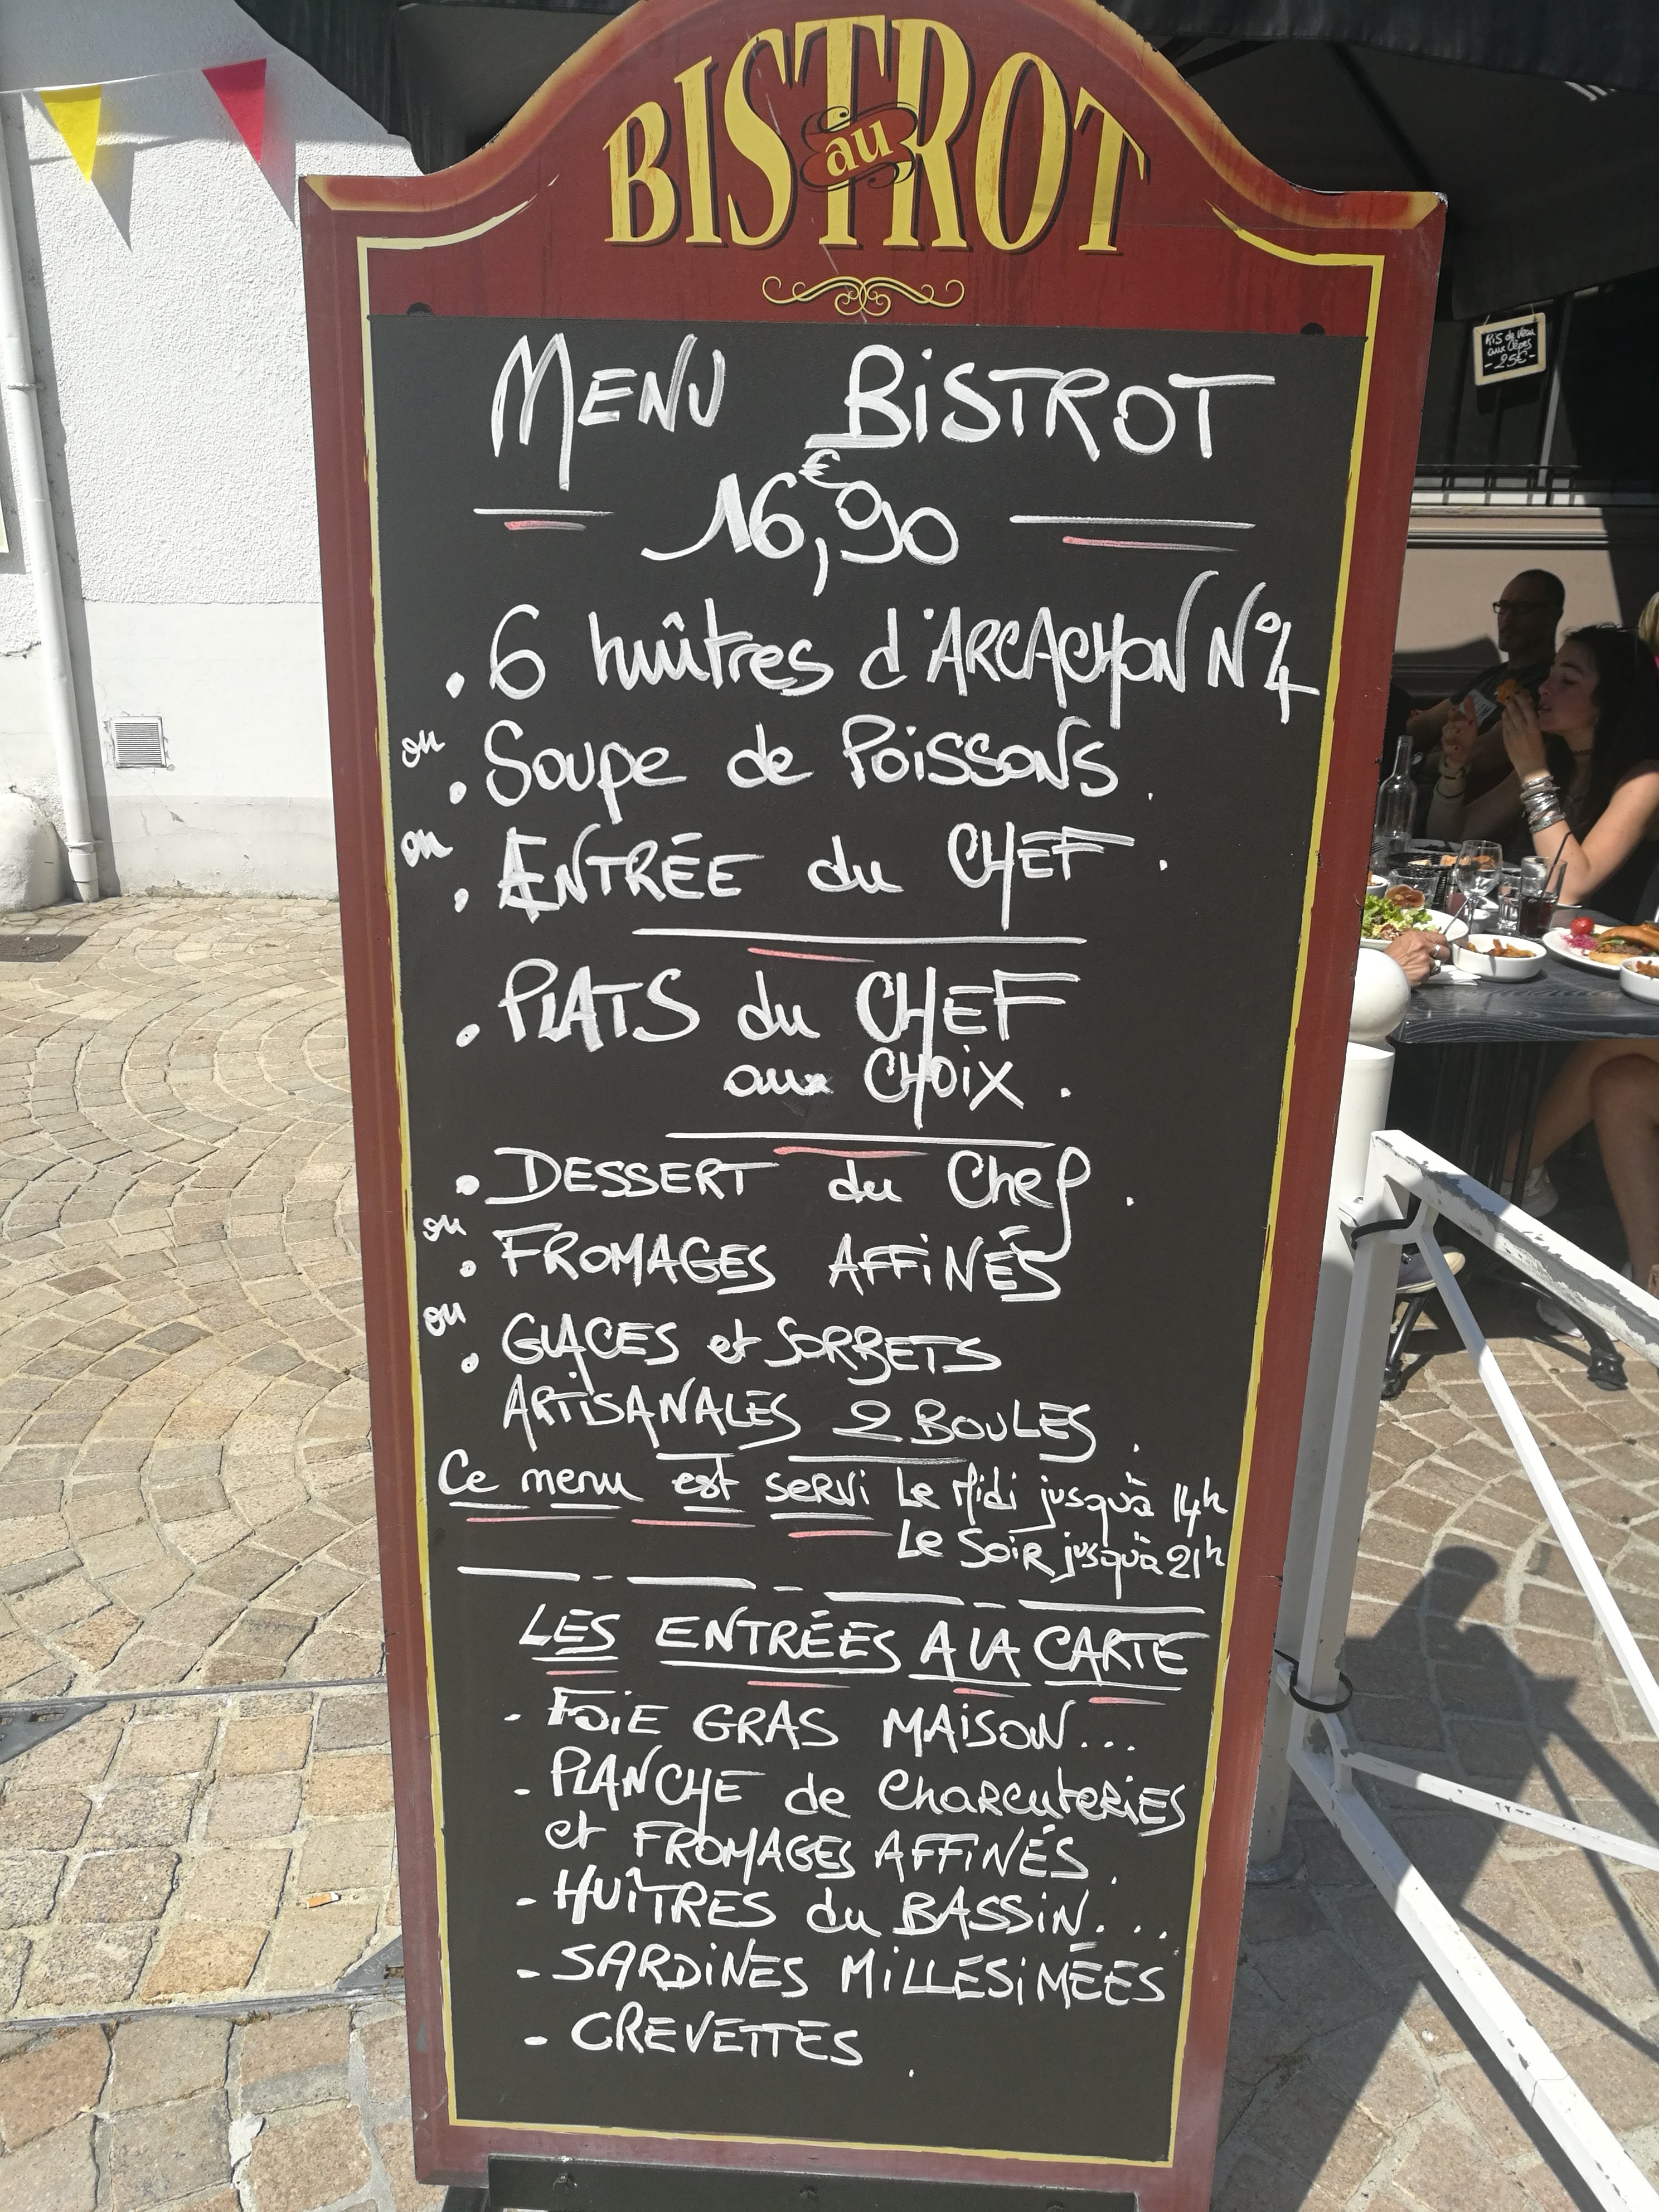 BISTROT
au
MENU BISTROT
€
16,90
. 6 huîtres d'ARCACHON N°4
ou
. Soupe de Poissons .
ou
. ENTRÉE du CHEF .
. PLATS du CHEF
aux CHOIX .
. DESSERT du Chef .
ou
. FROMAGES AFFINÉS
ou
. GLACES et SORBETS
ARTISANALES 2 BOULES .
Ce menu est servi Le Midi jusqu'à 14h
Le Soir jusqu'à 21h
LES ENTRÉES A LA CARTE
- FOIE GRAS MAISON...
- PLANCHE de Charcuteries
et FROMAGES AFFINÉS .
- HUÎTRES du BASSIN...
- SARDINES MILLESIMÉES
- CREVETTES .
Ris de Veau
aux Cèpes
- 25€ -